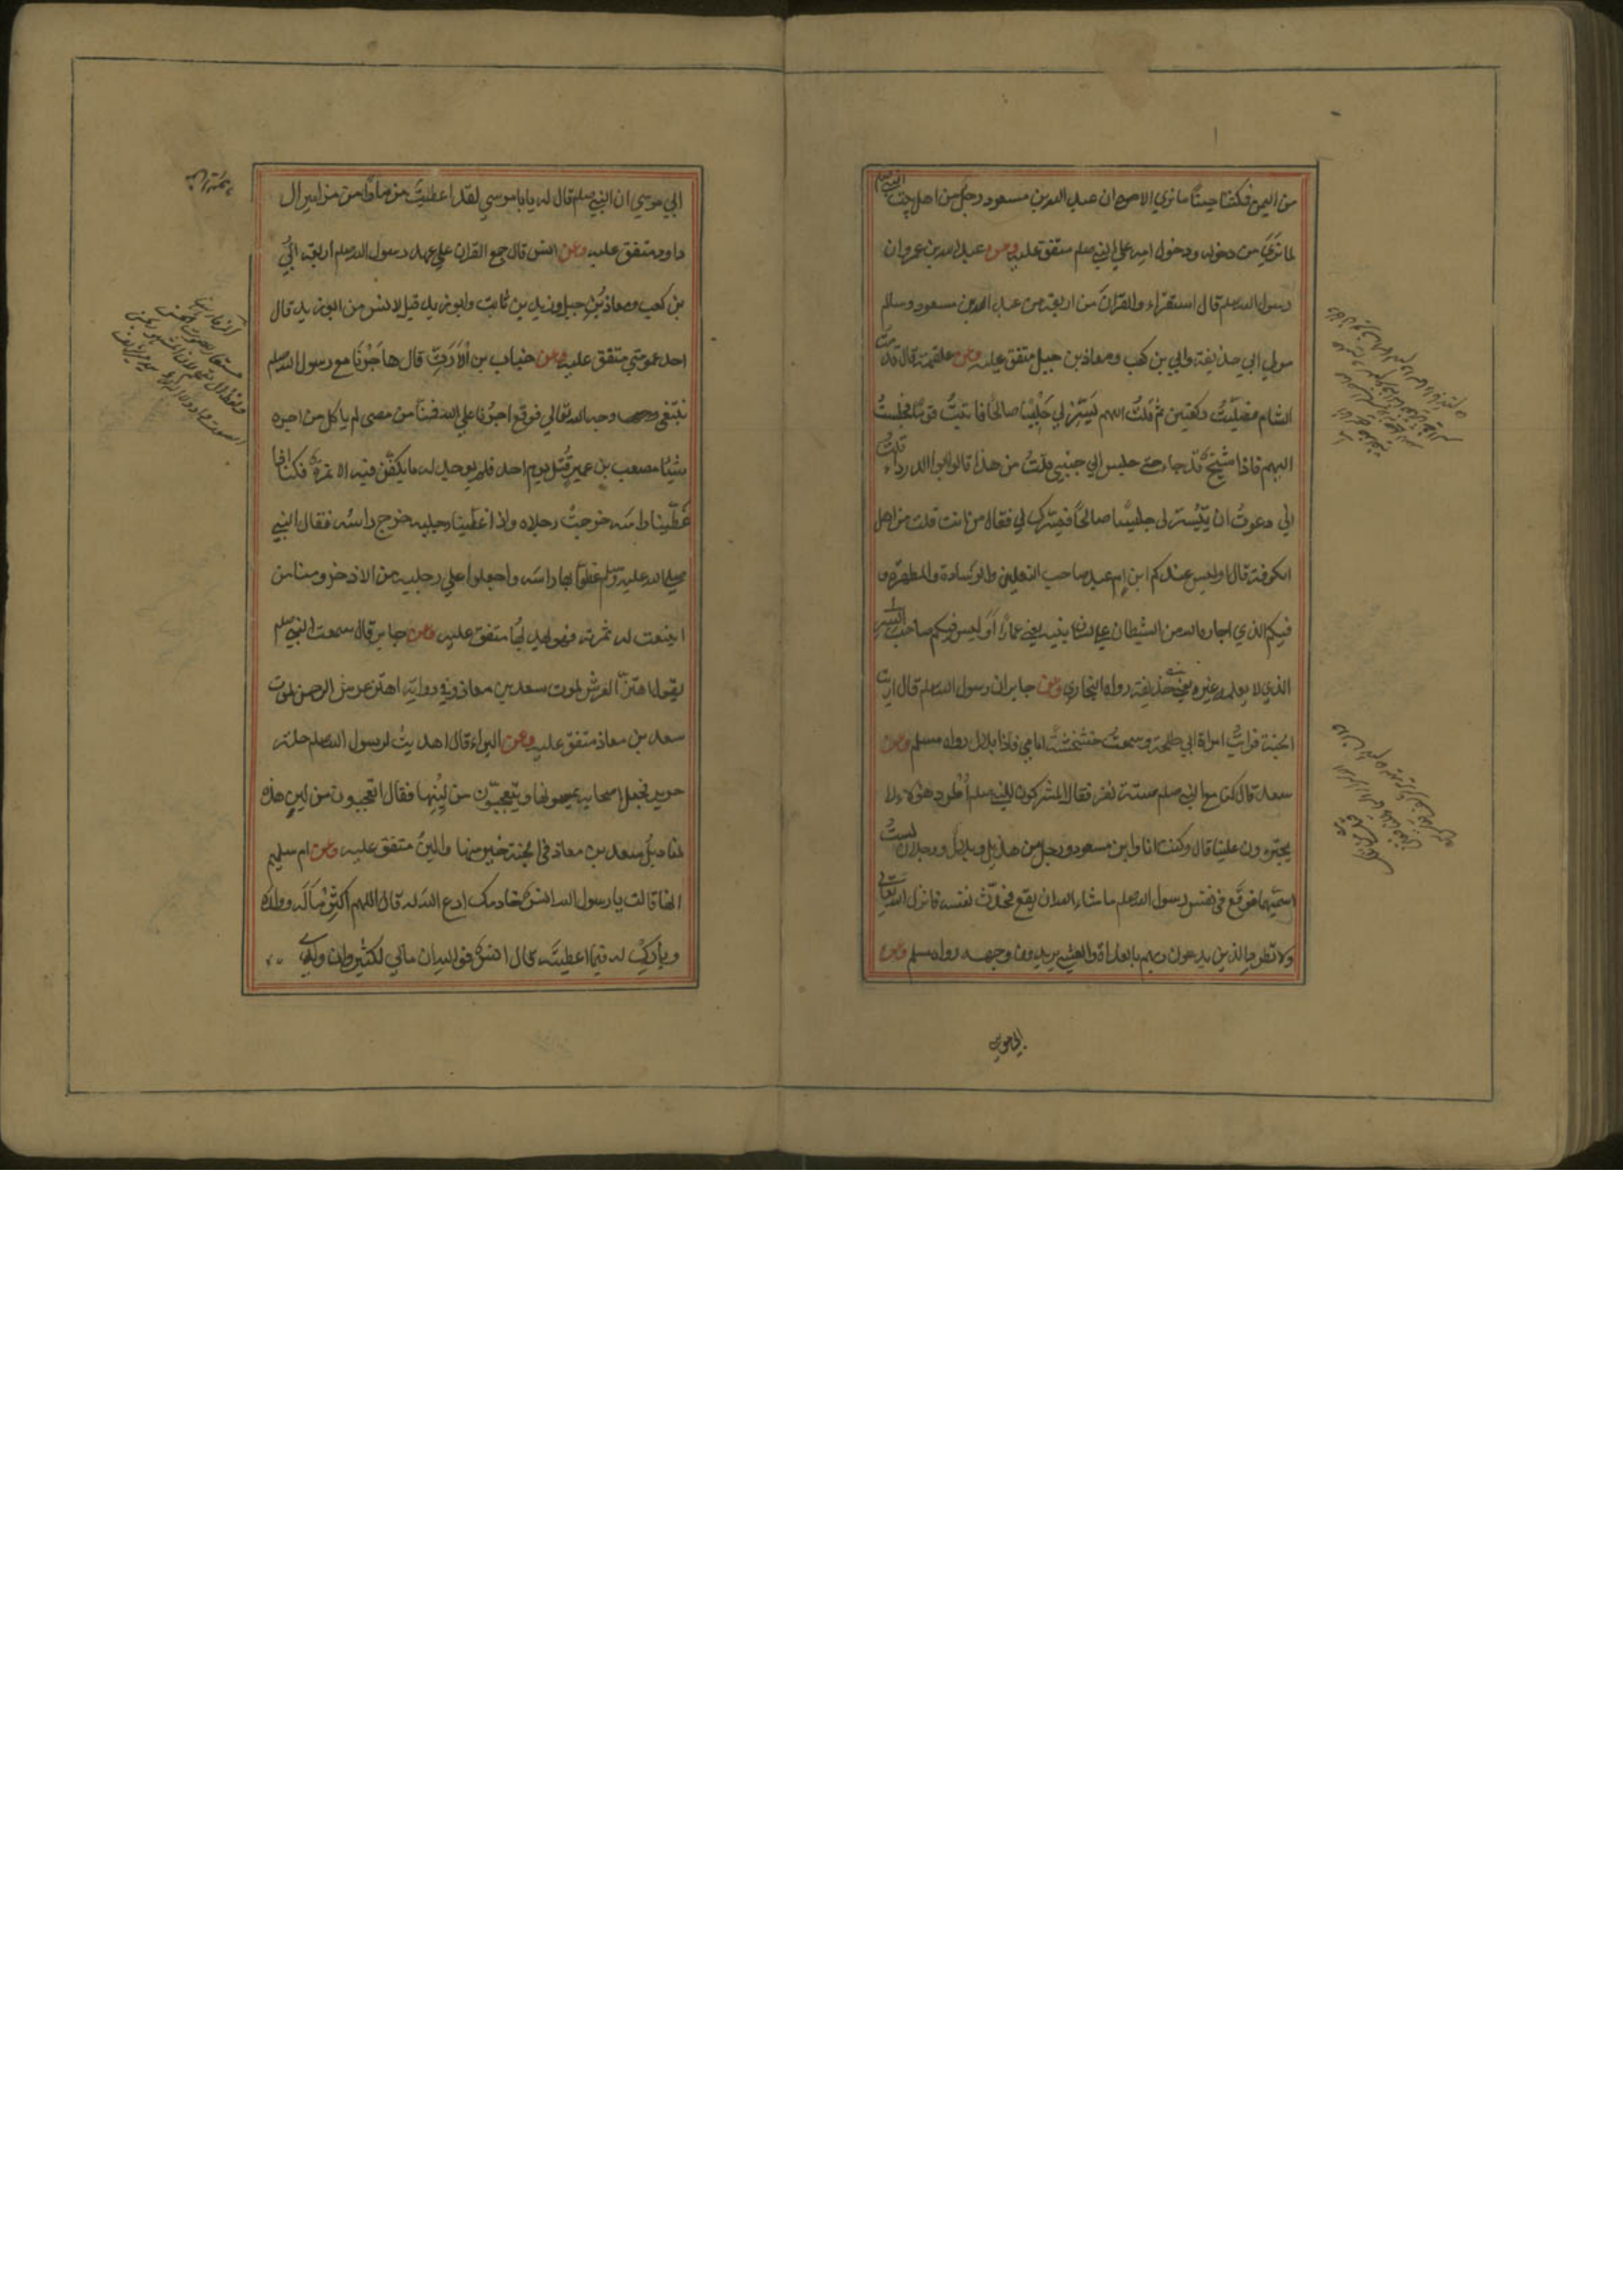 من اليمن فكثنا حينًا ما نري الا ان عبد الله بن مسعود رجل من اهل بيت النبي صلم
لما نَرَي من دخوله ودخول امه علي النبي صلم متفق عليه وعن عبد الله بن عمرو ان
رسول الله صلم قال استقراء والقرانَ من اربعة من عبد الله بن مسعود وسالم
مولي ابي حذيفة وابي بن كعب ومعاذ بن جبل متفق عليه وعن علقمة قال قدمت
الشام فصليّتُ ركعتين ثم قلتُ اللهم يَسّرْ لي جَلِيْسًا صالحًا فاتيتُ قومًا فجلستُ
اليهم فاذا شيخ قد جاء حتى جلس الي جنبي قلتُ من هذا قالوا ابوا الدرداء قلتُ
اني دعوتُ ان يُيسّر لي جليسًا صالحًا فيسّرك لي فقال من انت قلت من اهل
الكوفة قال اوليس عندكم ابن ام عبد صاحب النعلين والوسادة والمطهرة و
فيكم الذي اجاره الله من الشيطان علي لسان نبيه يعني عمارًا أوَليس فيكم صاحب السر
الذي لا يعلمه غيره يعني حذيفة رواه البخاري وعن جابر ان رسول الله صلم قال اريت
الجنة فرايتُ امراة ابي طلحة وسمعتُ خشخشةً امامي فاذا بلال رواه مسلم وعن
سعد قال كنا مع النبي صلم ستة نفر فقال المشركون للنبي صلم اُطْرد هؤلاء لا
يجترءون علينا قال وكنت انا وابن مسعود ورجل من هذيل وبلالٌ ورجلان لستُ
اسميهما فوقع في نفس رسول الله صلم ما شاء الله ان يقع فحدّث نفسه فانزل الله تعالي
ولا تطرد الذين يدعون ربهم بالغداة والعشي يريدون وجهه رواه مسلم وعن
ابي موسي
ابي موسي ان النبي صلم قال له يا ابا موسي لقد اعطيتَ مزمارًا من مزامير ال
داود متفق عليه وعن انس قال جمع القران علي عهد رسول الله صلم اربعة ابيُّ
بن كعب ومعاذ بن جبل وزيد بن ثابت وابو زيد قيل لانس من ابو زيد قال
احد عمومتي متفق عليه وعن خباب بن الاَرَتِّ قال هاجَرْنَا مع رسول الله صلم
نبتغي وجه الله تعالي فوقع اجرُنا علي الله فمنّا من مضي لم ياكل من اجره
شيئًا مصعب بن عمير قُتل يوم احد فلم يوجد له ما يكفّن فيه الا نمرة فكنا اذا
غَطّينا راسَه خرجتْ رجلاه واذا غطّينا رجليه خرج راسُه فقال النبي
صلي الله عليه وسلم غطوا بها راسَه واجعلوا علي رجليه من الاذخر ومنا من
اينعت له ثمرته فهو يهدبُها متفق عليه وعن جابر قال سمعت النبي صلم
يقول اهتزّ العرش لموت سعد بن معاذ وفي رواية اهتز عرش الرحمن لموت
سعد بن معاذ متفق عليه وعن البراء قال اهديتُ لرسول الله صلم حلة
حرير فجعل اصحابه يمسونها ويتعجّبون من لِينِها فقال اتعجبون من لين هذه
لمناديل سعد بن معاذ في الجنة خير منها والينُ متفق عليه وعن ام سليم
انها قالت يا رسول الله انسٌ خادمك ادع الله له قال اللهم اَكثِرْ مالَه وولده
وبارك له فيما اعطيتَه قال انسٌ فوالله ان مالي لكثير وان ولدي